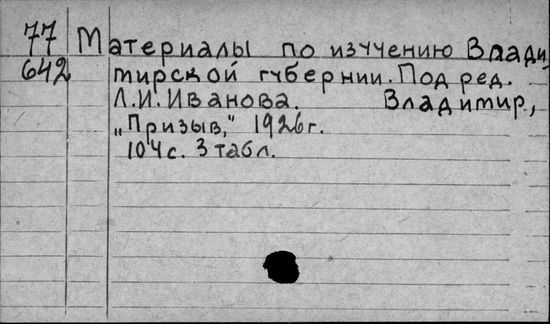 77 Материалы по изучению Влади-
642 мирской губернии. Под ред.
Л.И.Иванова. Владимир,
„Призыв," 1926г.
104с. 3 табл.